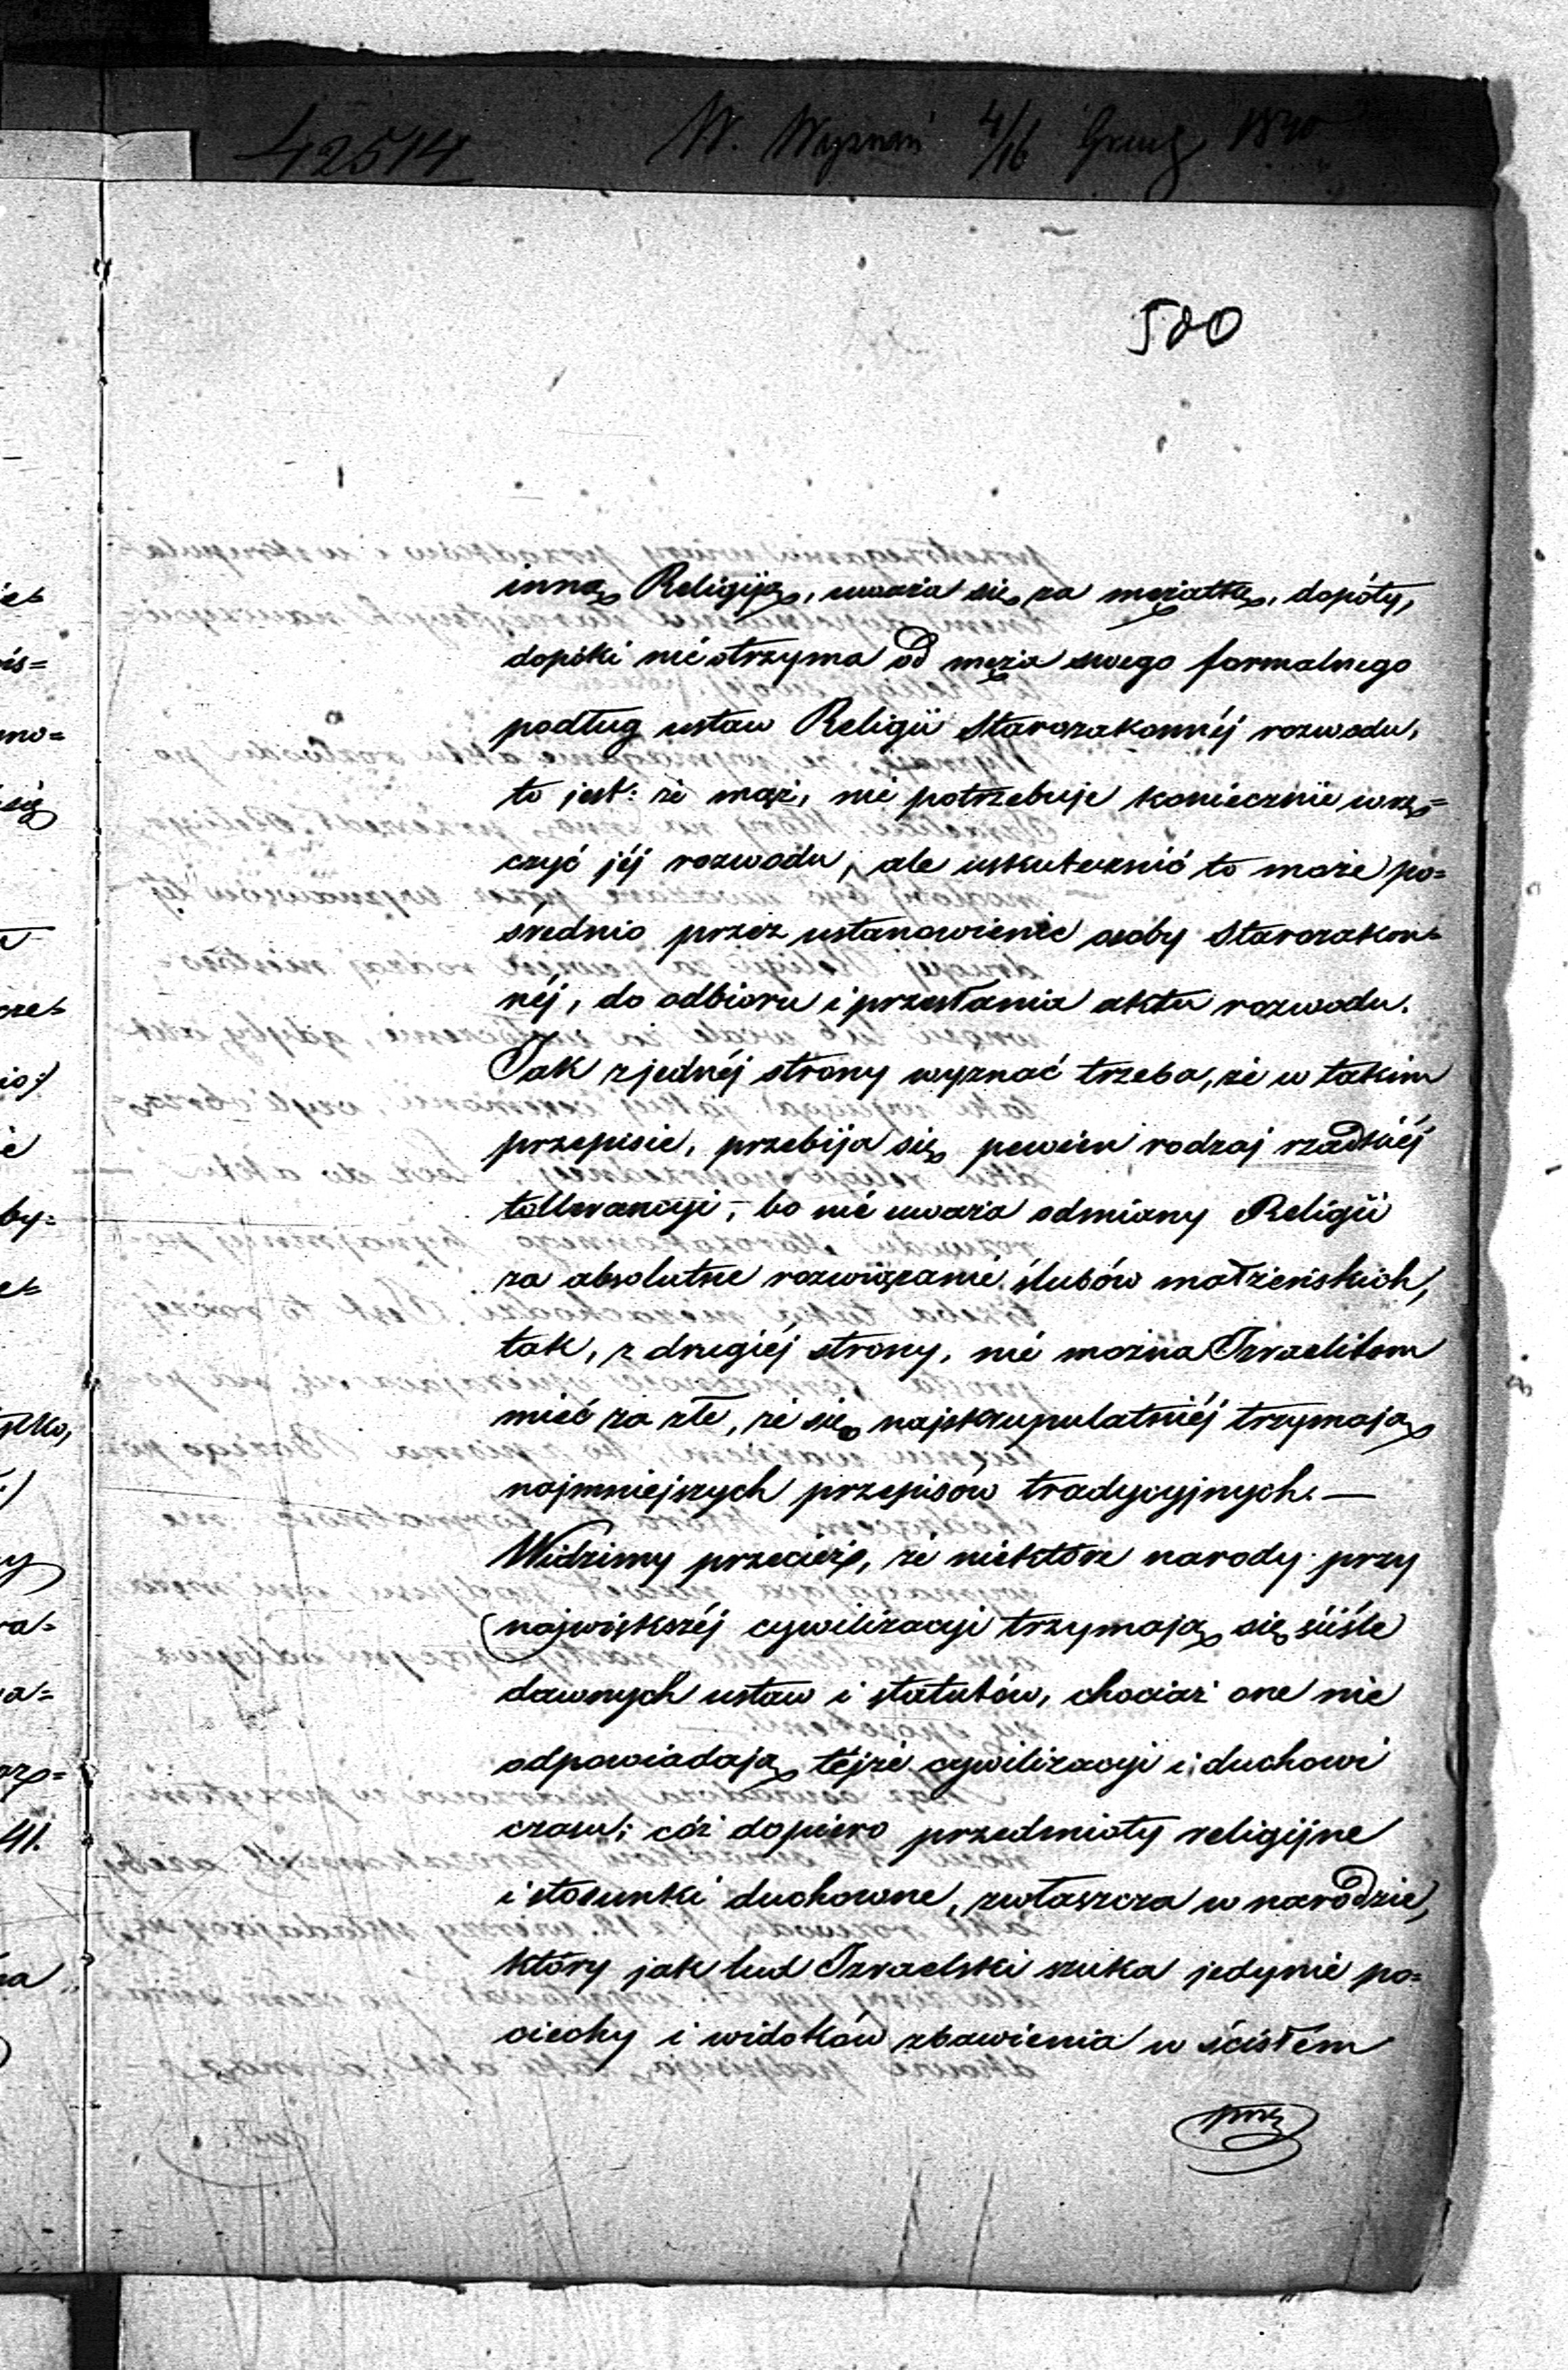 42514 W. Wyznań 4/16 Grud 1840
500
inną Religiją, uważa się za mężatkę, dopóty,
dopóki nie otrzyma od męża swego formalnego
podług ustaw Religii Starozakonnéj rozwodu,
to jest: że mąż, nie potrzebuje koniecznie wrę=
czyć jéj rozwodu, ale uskutecznić to może po=
średnio przez ustanowienie osoby Starozakon=
néj, do odbioru i przesłania aktu rozwodu.
Jak z jednéj strony wyznać trzeba, że w takim
przepisie, przebija się pewien rodzaj rzadkiéj
tollerancyi, bo nie uważa odmiany Religii
za absolutne rozwiązanie ślubów małżeńskich,
tak, z drugiéj strony, nie można Izraelitom
mieć za złe, że się najskrupulatniéj trzymają
najmniejszych przepisów tradycyjnych. —
Widzimy przecież, że niektóre narody przy
największéj cywilizacyi trzymają się ściśle
dawnych ustaw i statutów, chociaż one nie
odpowiadają téjże cywilizacyi i duchowi
czasu; cóż dopiero przedmioty religijne
i stosunki duchowne, zwłaszcza w narodzie,
który jak lud Izraelski szuka jedynie po=
ciechy i widoków zbawienia w ścisłém
prze